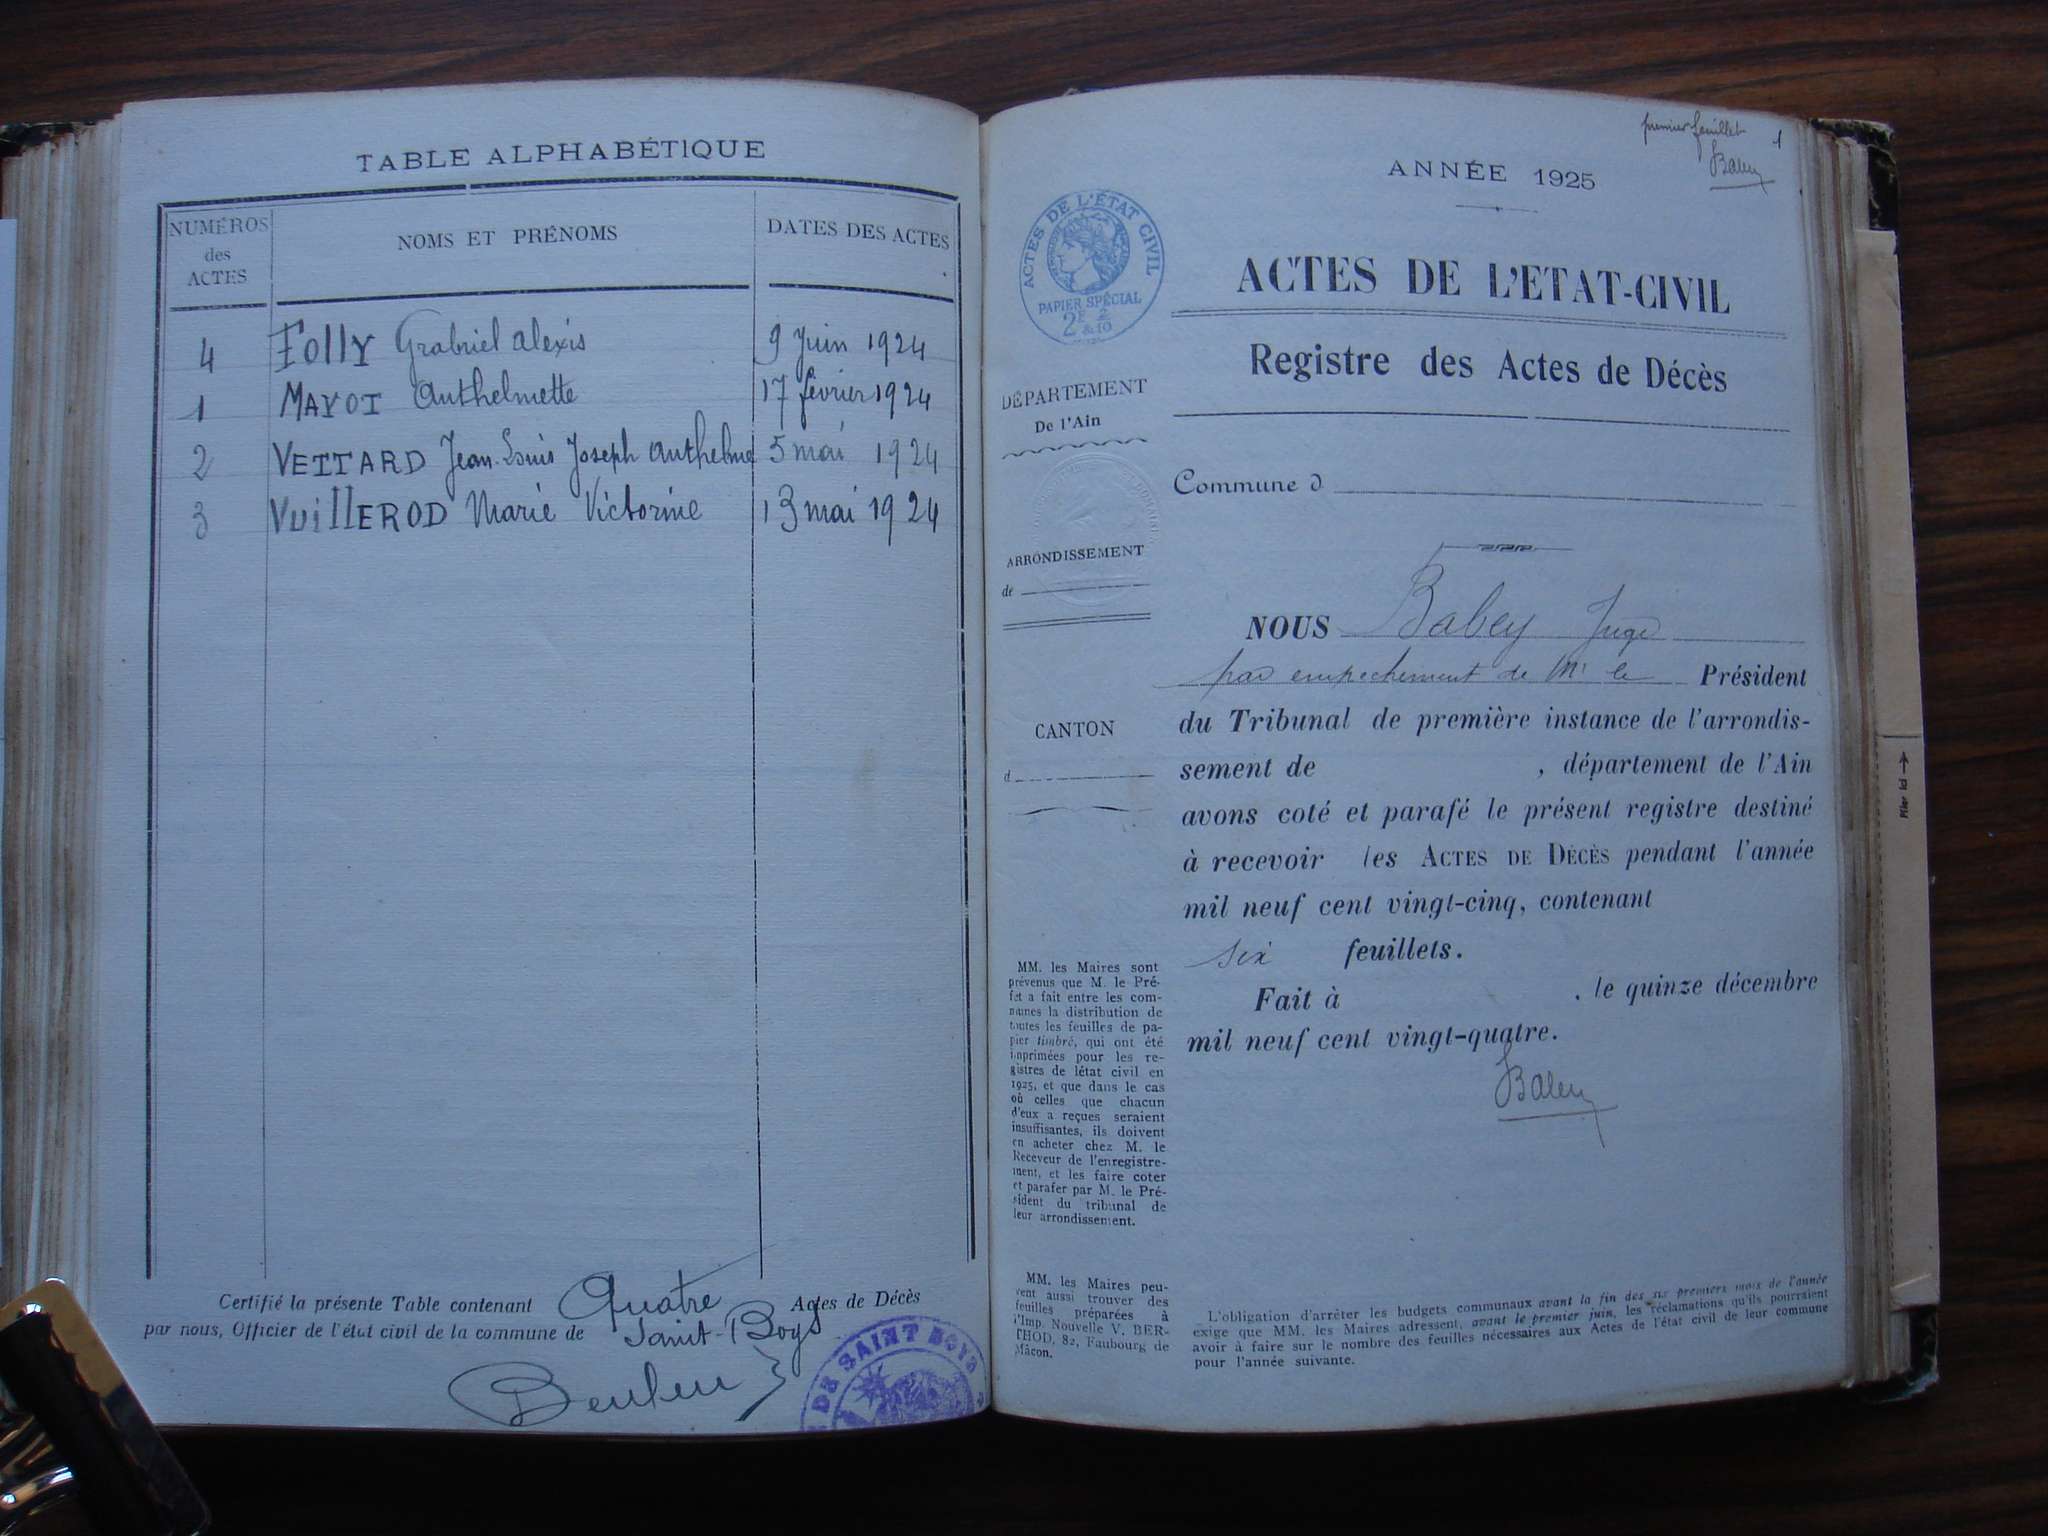 TABLE ALPHABÉTIQUE
NUMÉROS des ACTES
NOMS ET PRÉNOMS
DATES DES ACTES
4 Folly Grabriel Alexis 9 Juin 1924
1 MAYOT Anthelmette 17 février 1924
2 VETTARD Jean-Louis Joseph Anthelme 5 mai 1924
3 VUILLEROD Marie Victorine 13 mai 1924
Certifié la présente Table contenant Quatre Actes de Décès
par nous, Officier de l'état civil de la commune de Saint-Boys
DE SAINT BOYS
premier feuillet 1
ANNÉE 1925
ACTES DE L'ÉTAT CIVIL
PAPIER SPÉCIAL
2F 2
& 10
ACTES DE L'ETAT-CIVIL
Registre des Actes de Décès
DÉPARTEMENT
De l'Ain
Commune d
ARRONDISSEMENT
de
CANTON
d
NOUS Babey Juge
par empechement de Mr le Président
du Tribunal de première instance de l'arrondis-
sement de , département de l'Ain
avons coté et parafé le présent registre destiné
à recevoir les ACTES DE DÉCÈS pendant l'année
mil neuf cent vingt-cinq, contenant
six feuillets.
Fait à , le quinze décembre
mil neuf cent vingt-quatre.
MM. les Maires sont
prévenus que M. le Pré-
fet a fait entre les com-
munes la distribution de
toutes les feuilles de pa-
pier timbré, qui ont été
imprimées pour les re-
gistres de létat civil en
1925, et que dans le cas
où celles que chacun
d'eux a reçues seraient
insuffisantes, ils doivent
en acheter chez M. le
Receveur de l'enregistre-
ment, et les faire coter
et parafer par M. le Pré-
sident du tribunal de
leur arrondissement.
MM. les Maires peu-
vent aussi trouver des
feuilles préparées à
l'Imp. Nouvelle V. BER-
THOD, 82, Faubourg de
Mâcon.
L'obligation d'arrêter les budgets communaux avant la fin des six premiers mois de l'année
exige que MM. les Maires adressent, avant le premier juin, les réclamations qu'ils pourraient
avoir à faire sur le nombre des feuilles nécessaires aux Actes de l'état civil de leur commune
pour l'année suivante.
Plier ici